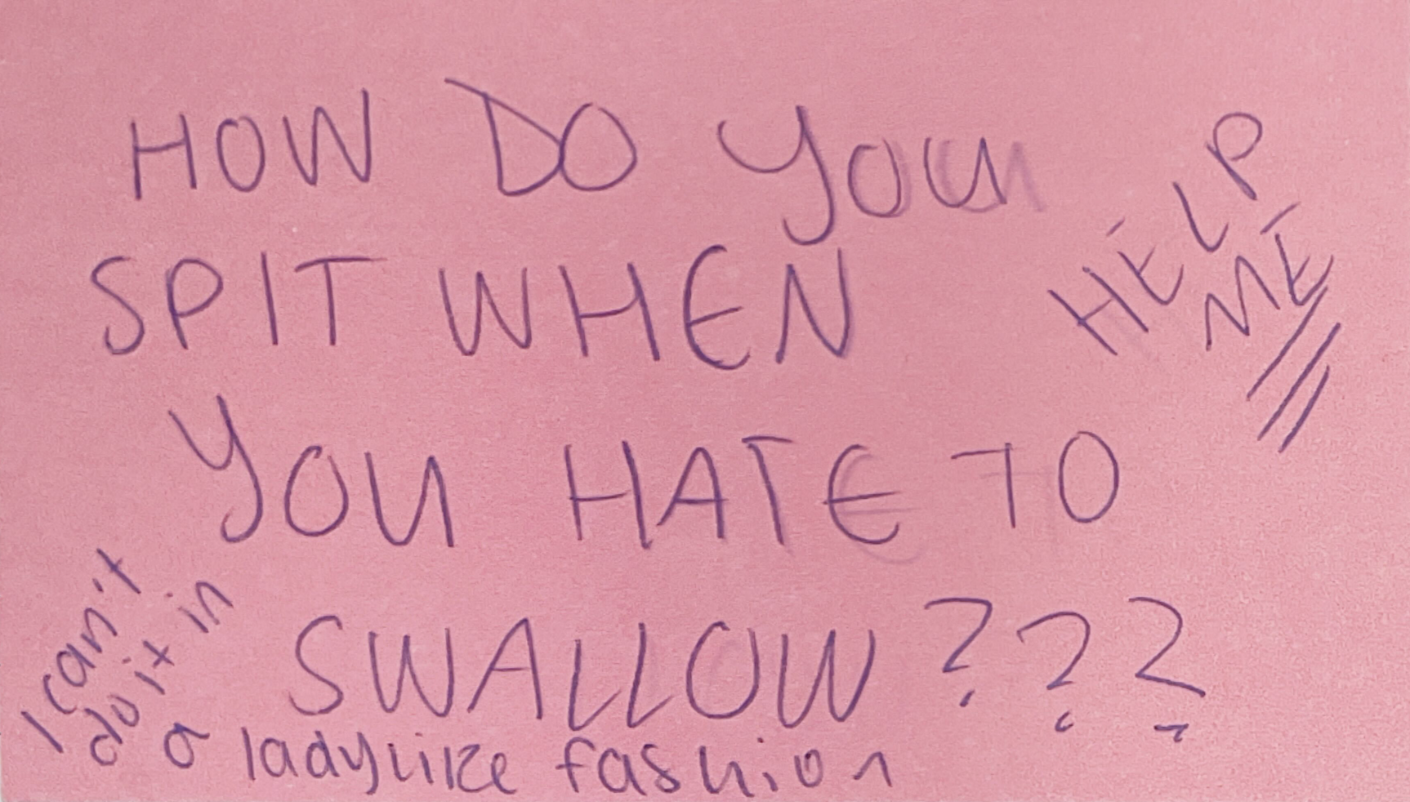 HOW DO YOU
SPIT WHEN
YOU HATE TO
SWALLOW???
HELP
ME
I can't
do it in
a ladylike fashion